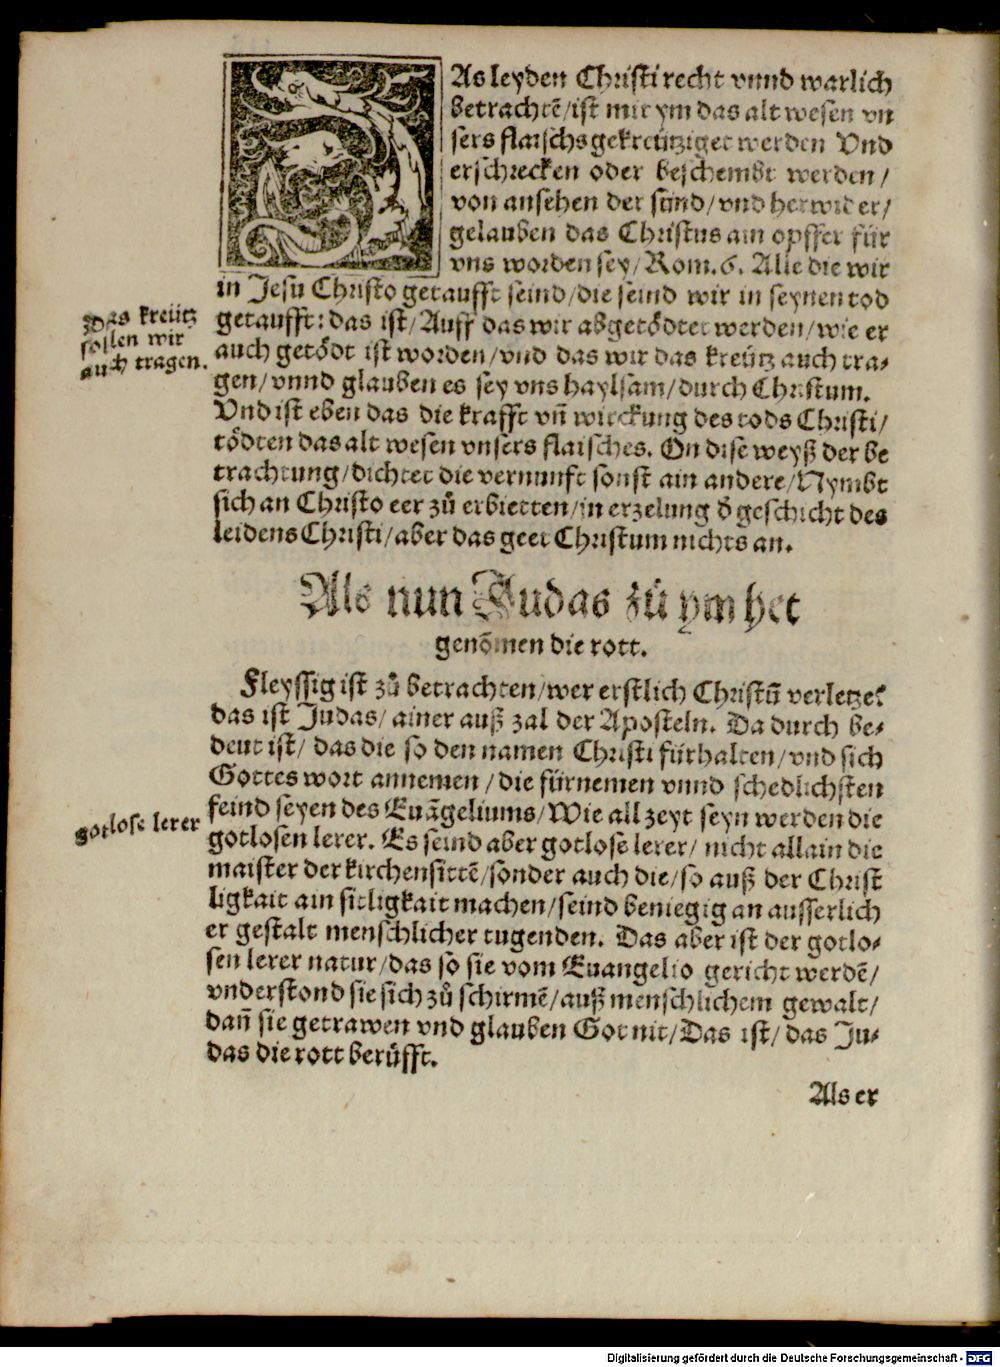 DAs leyden Christi recht vnnd warlich
betrachtē/ist mit ym das alt wesen vn
sers flaischs gekreütziget werden Vnd
erschrecken oder beschembt werden/
von ansehen der sünd/vnd herwider/
gelauben das Christus ain opffer für
vns worden sey/Rom.6. Alle die wir
in Jesu Christo getaufft seind/die seind wir in seynen tod
getaufft: das ist/Auff das wir abgetödtet werden/wie er
auch getödt ist worden/vnd das wir das kreütz auch tra-
gen/vnnd glauben es sey vns haylsam/durch Christum.
Vnd ist eben das die krafft vñ wirckung des tods Christi/
tödten das alt wesen vnsers flaisches. On dise weyß der be
trachtung/dichtet die vernunft sonst ain andere/Nymbt
sich an Christo eer zů erbietten/in erzelung d̄ geschicht des
leidens Christi/aber das geet Christum nichts an.
Das kreütz
sollen wir
auch tragen.
Als nun Judas zů ym het
genōmen die rott.
Fleyssig ist zů betrachten/wer erstlich Christū verletze?
das ist Judas/ainer auß zal der Aposteln. Da durch be-
deut ist/das die so den namen Christi fürhalten/vnd sich
Gottes wort annemen/die fürnemen vnnd schedlichsten
feind seyen des Euāgeliums/Wie all zeyt seyn werden die
gotlosen lerer. Es seind aber gotlose lerer/nicht allain die
maister der kirchensittē/sonder auch die/so auß der Christ
ligkait ain sitligkait machen/seind beniegig an ausserlich
er gestalt menschlicher tugenden. Das aber ist der gotlo-
sen lerer natur/das so sie vom Euangelio gericht werdē/
vnderstond sie sich zů schirmē/auß menschlichem gewalt/
dañ sie getrawen vnd glauben Got nit/Das ist/das Ju-
das die rott berůfft.
gotlose lerer
Als er
Digitalisierung gefördert durch die Deutsche Forschungsgemeinschaft - DFG